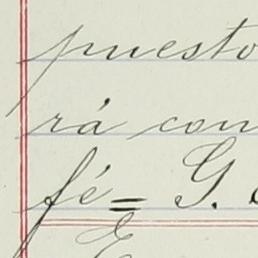 puesto
rá con
fé= G.
E